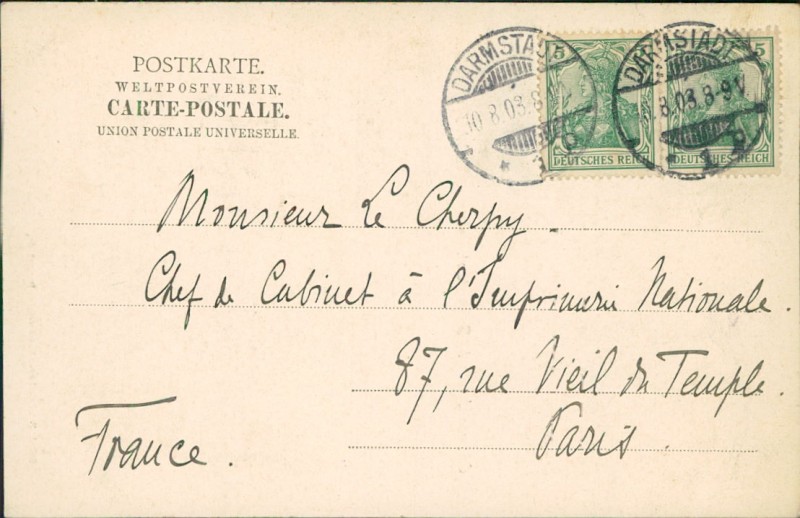 POSTKARTE.
WELTPOSTVEREIN.
CARTE-POSTALE.
UNION POSTALE UNIVERSELLE.
DARMSTADT
10.8.03.8
DARMSTADT
8.03.8-9V
5
5
DEUTSCHES REICH
DEUTSCHES REICH
Monsieur Le Cherpy.
Chef de Cabinet à l'Imprimerie Nationale.
87, rue Vieil du Temple.
Paris.
France.